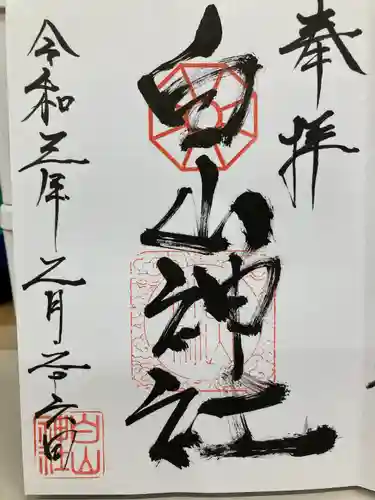 奉拝
白山神社
令和三年二月廿六日
白山神社